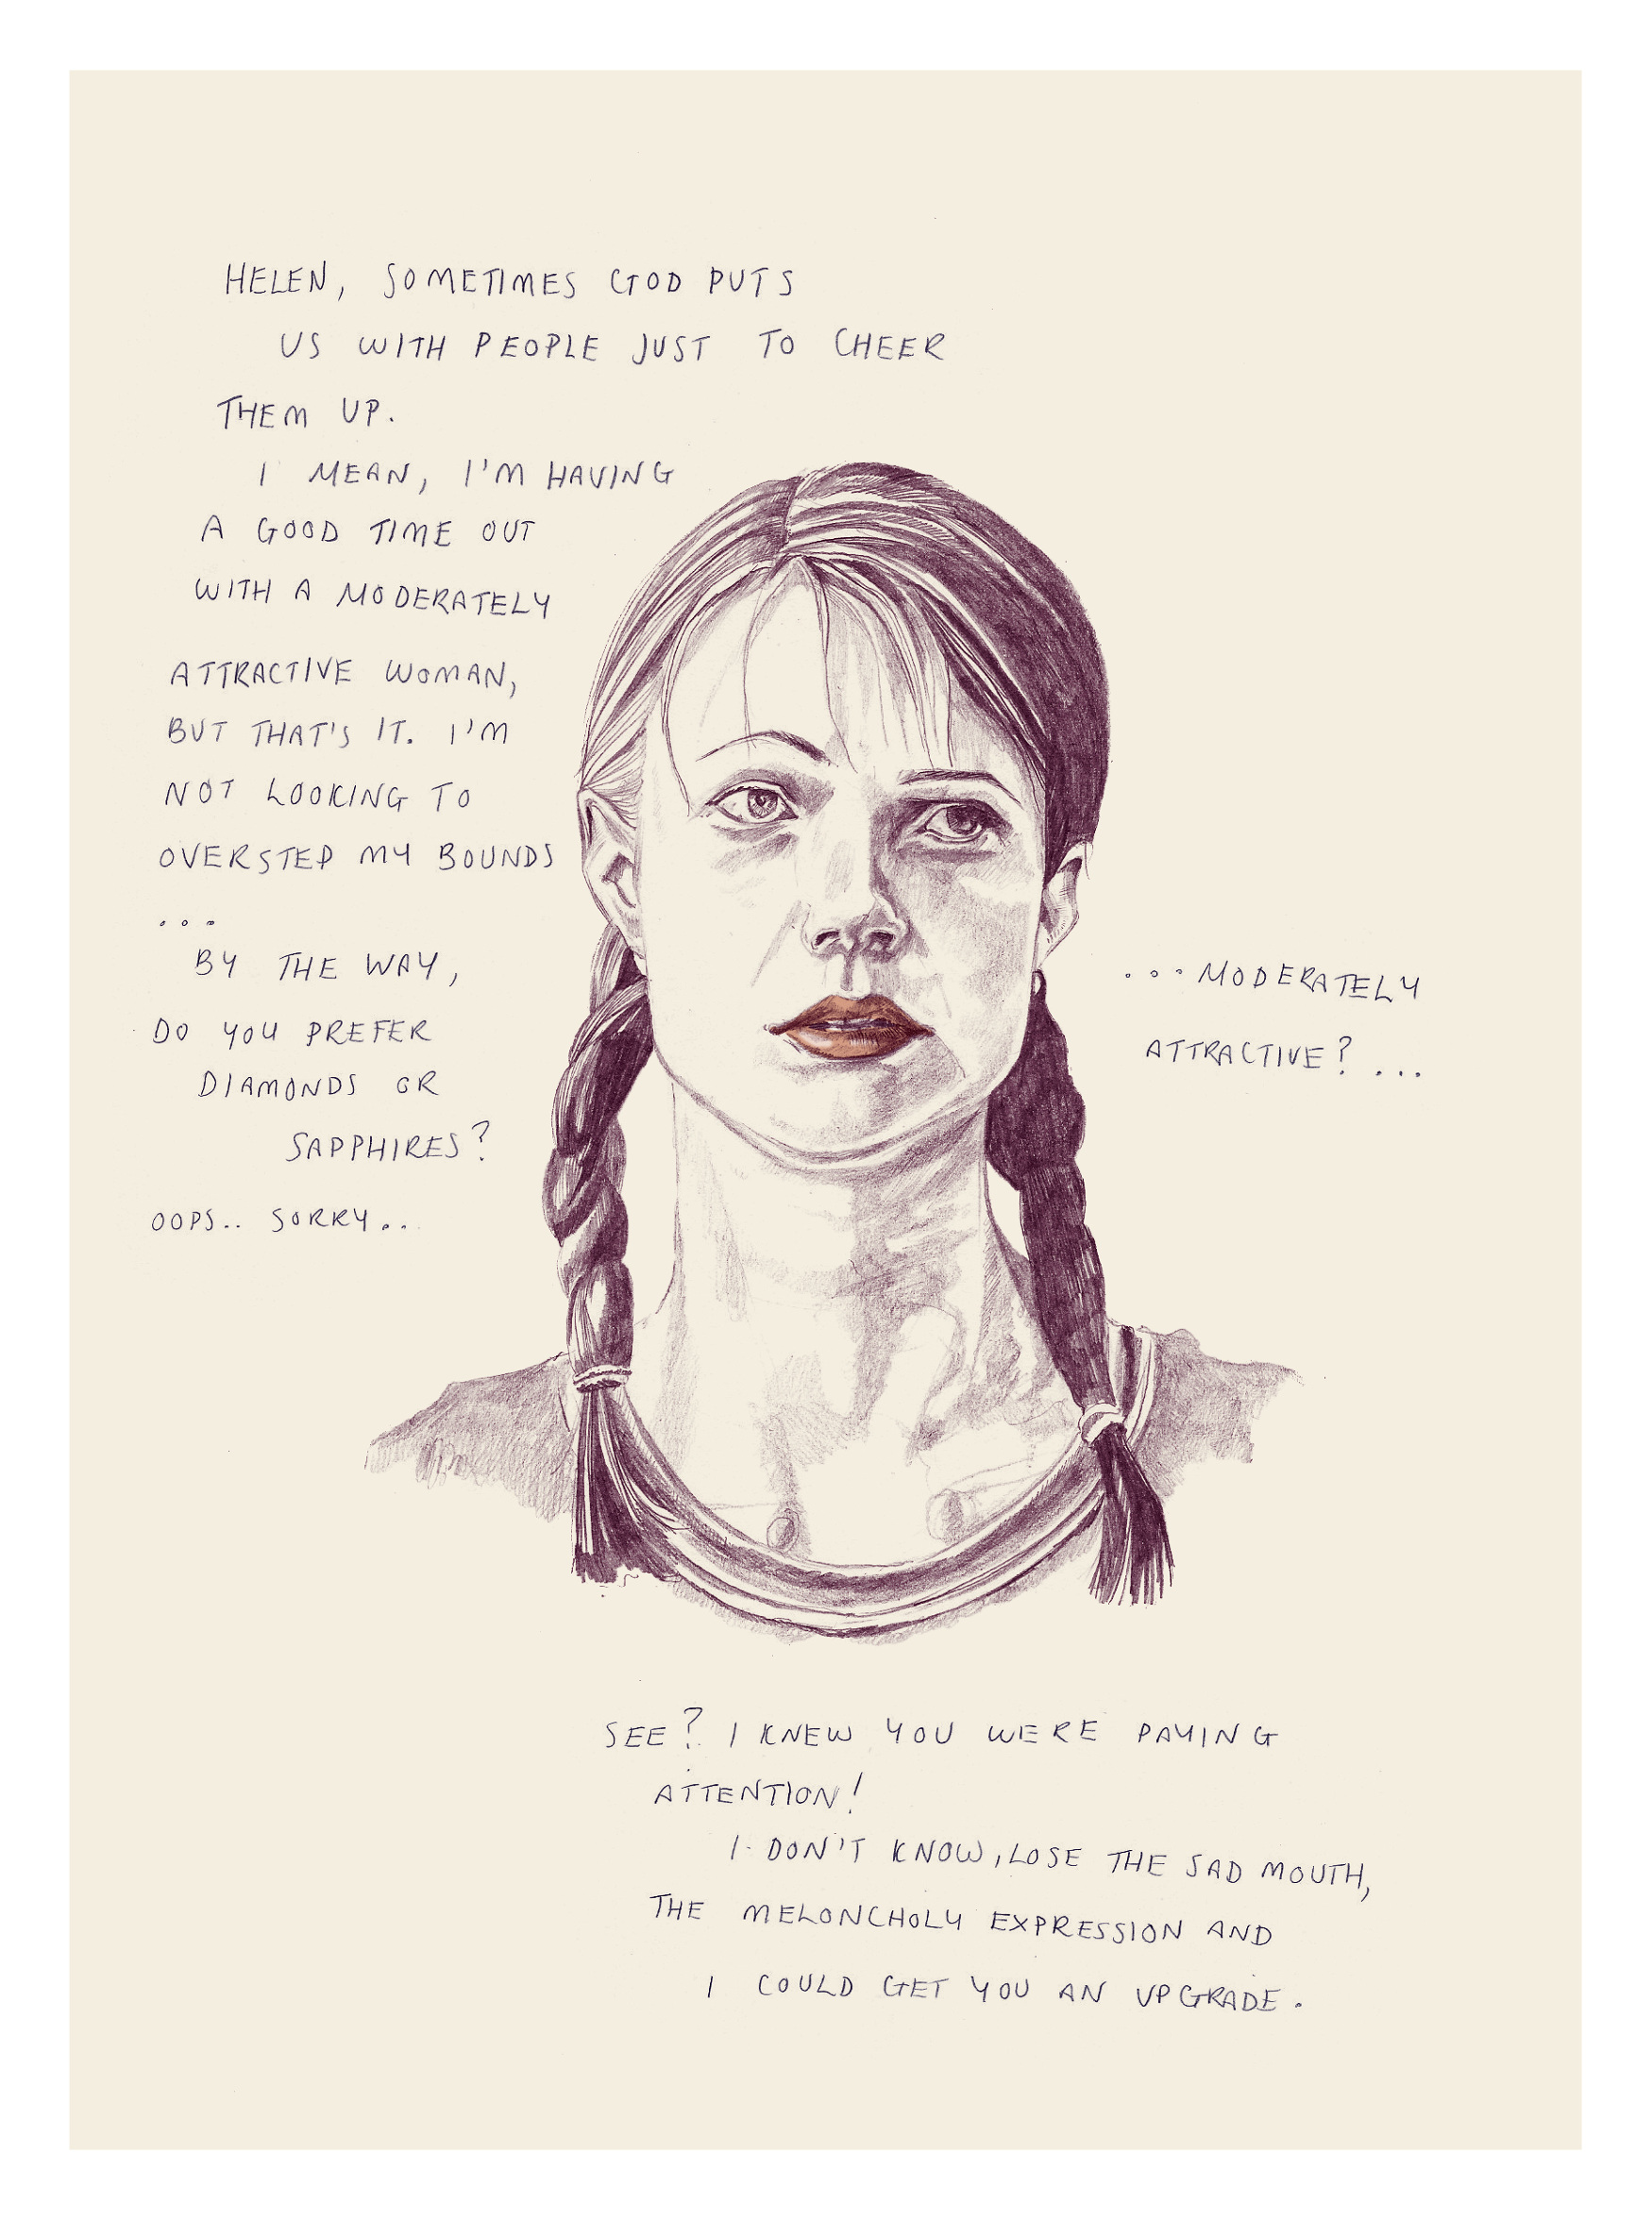 HELEN, SOMETIMES GOD PUTS
US WITH PEOPLE JUST TO CHEER
THEM UP.
I MEAN, I'M HAVING
A GOOD TIME OUT
WITH A MODERATELY
ATTRACTIVE WOMAN,
BUT THAT'S IT. I'M
NOT LOOKING TO
OVERSTEP MY BOUNDS
...
BY THE WAY,
DO YOU PREFER
DIAMONDS OR
SAPPHIRES?
OOPS.. SORRY..
...MODERATELY
ATTRACTIVE? ...
SEE? I KNEW YOU WERE PAYING
ATTENTION!
I DON'T KNOW, LOSE THE SAD MOUTH,
THE MELONCHOLY EXPRESSION AND
I COULD GET YOU AN UPGRADE.